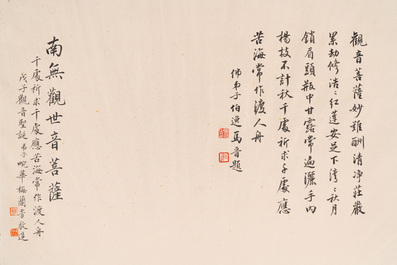 觀音菩薩妙難酬清淨莊嚴
累劫修浩浩紅蓮安足下灣灣秋月
鎖眉頭瓶中甘露常遍灑手內
楊枝不計秋千處祈求千處應
苦海常作渡人舟
佛弟子伯逸馬音題
南無觀世音菩薩
千處祈求千處應苦海常作渡人舟
戊子觀音聖誕弟子畹華梅蘭芳敬造